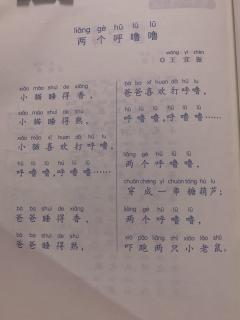 liǎng gè hū lū lū
两个呼噜噜
wáng yí zhèn
◎王宜振
xiǎo māo shuì de xiāng
小猫睡得香，
xiǎo māo shuì de shú
小猫睡得熟，
xiǎo māo xǐ huan dǎ hū lu
小猫喜欢打呼噜，
hū lū lū hū lū lū
呼噜噜，呼噜噜……
bà ba shuì de xiāng
爸爸睡得香，
bà ba shuì de shú
爸爸睡得熟，
bà ba xǐ huan dǎ hū lu
爸爸喜欢打呼噜，
hū lū lū hū lū lū
呼噜噜，呼噜噜……
liǎng gè hū lū lū
两个呼噜噜，
chuān chéng yí chuàn táng hú lu
穿成一串糖葫芦；
liǎng gè hū lū lū
两个呼噜噜，
xià pǎo liǎng zhī xiǎo lǎo shǔ
吓跑两只小老鼠。